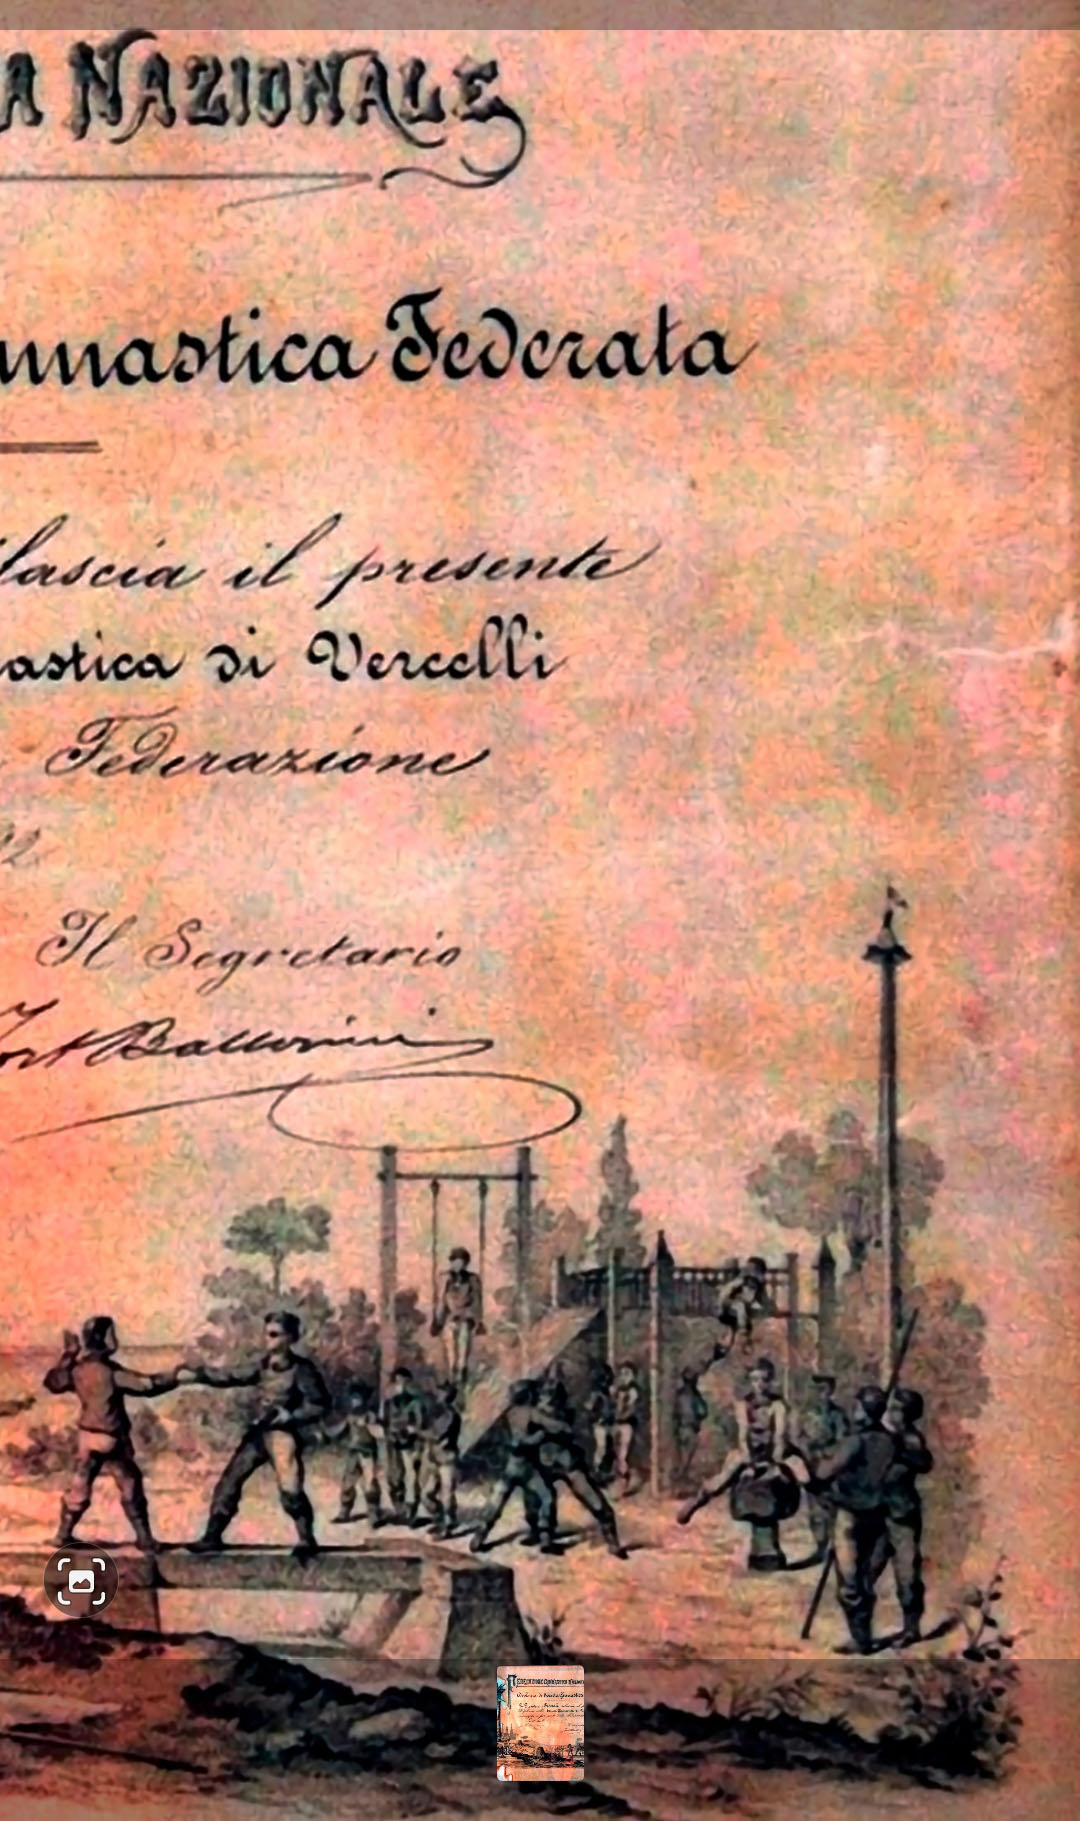 A NAZIONALE
nnastica Federata
lascia il presente
astica di Vercelli
Federazione
Il Segretario